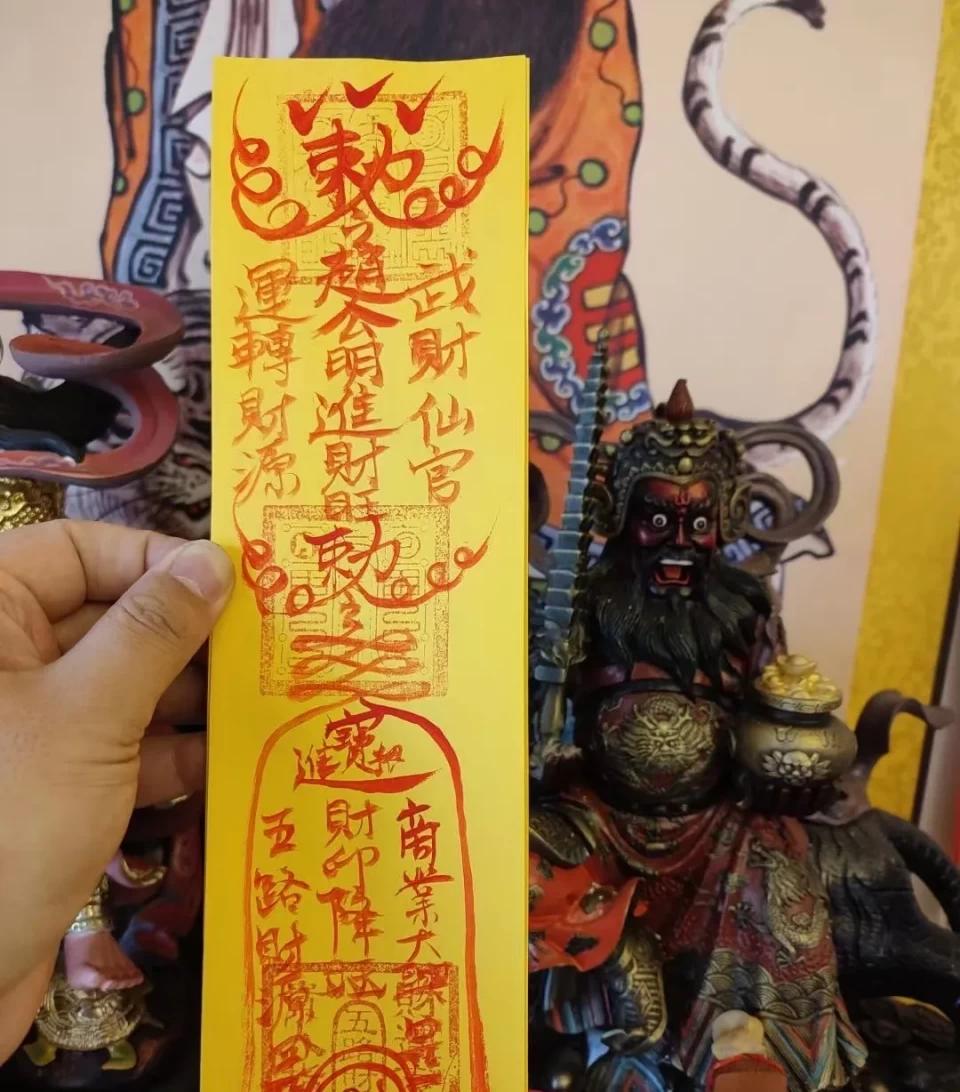 勅
武財仙官
趙公明進財旺
運轉財源
勅
進寶招
商業大
財印降
五路財源
五